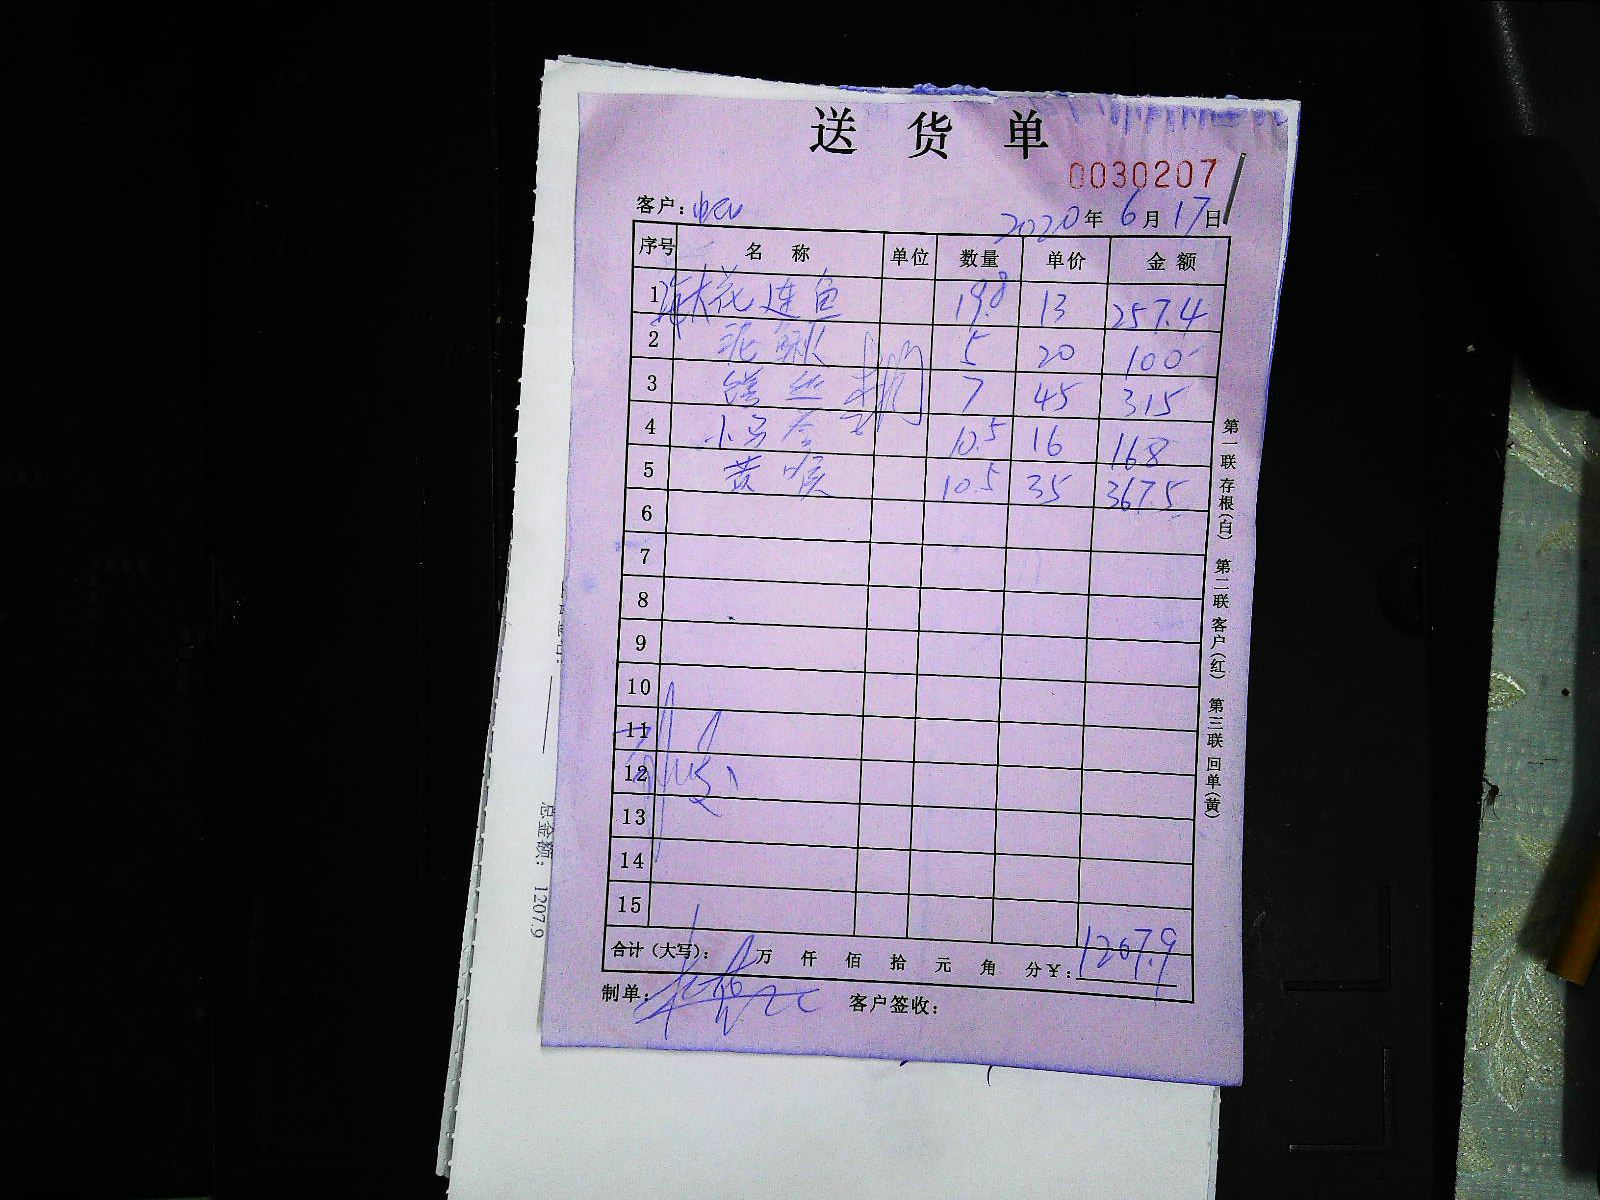 送货单
0030207
客户:
2020年6月17日
序号 名称 单位 数量 单价 金额
1 花连鱼 19.8 13 257.4
2 泥鳅 5 20 100
3 丝 7 45 315
4 小 10.5 16 168
5 黄喉 10.5 35 367.5
6
7
8
9
10
11
12
13
14
15
合计(大写): 万 仟 佰 拾 元 角 分¥: 1207.9
制单: 客户签收:
第一联 存根(白) 第二联 客户(红) 第三联 回单(黄)
总金额: 1207.9